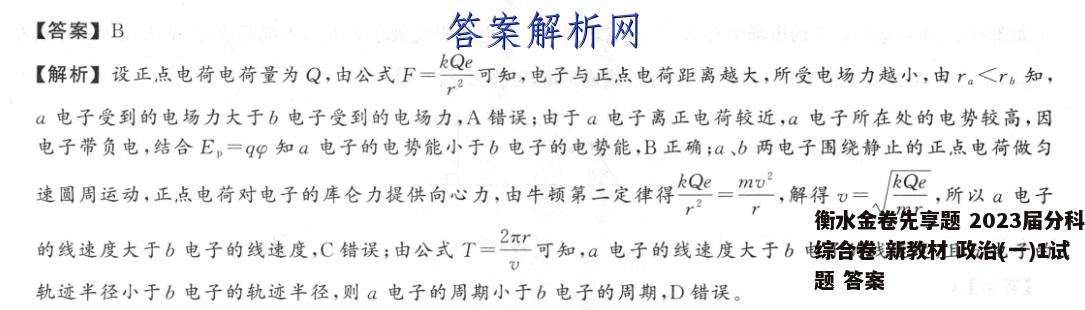 答案解析网
【答案】B
【解析】设正点电荷电荷量为Q,由公式F=kQe/r²可知,电子与正点电荷距离越大,所受电场力越小,由rₐ<r_b知,
a电子受到的电场力大于b电子受到的电场力,A错误;由于a电子离正电荷较近,a电子所在处的电势较高,因
电子带负电,结合Eₚ=qφ知a电子的电势能小于b电子的电势能,B正确;a、b两电子围绕静止的正点电荷做匀
速圆周运动,正点电荷对电子的库仑力提供向心力,由牛顿第二定律得kQe/r²=mv²/r,解得v=√(kQe/mr),所以a电子
的线速度大于b电子的线速度,C错误;由公式T=2πr/v可知,a电子的线速度大于b
轨迹半径小于b电子的轨迹半径,则a电子的周期小于b电子的周期,D错误。
衡水金卷先享题 2023届分科
综合卷 新教材 政治(一)1试
题 答案